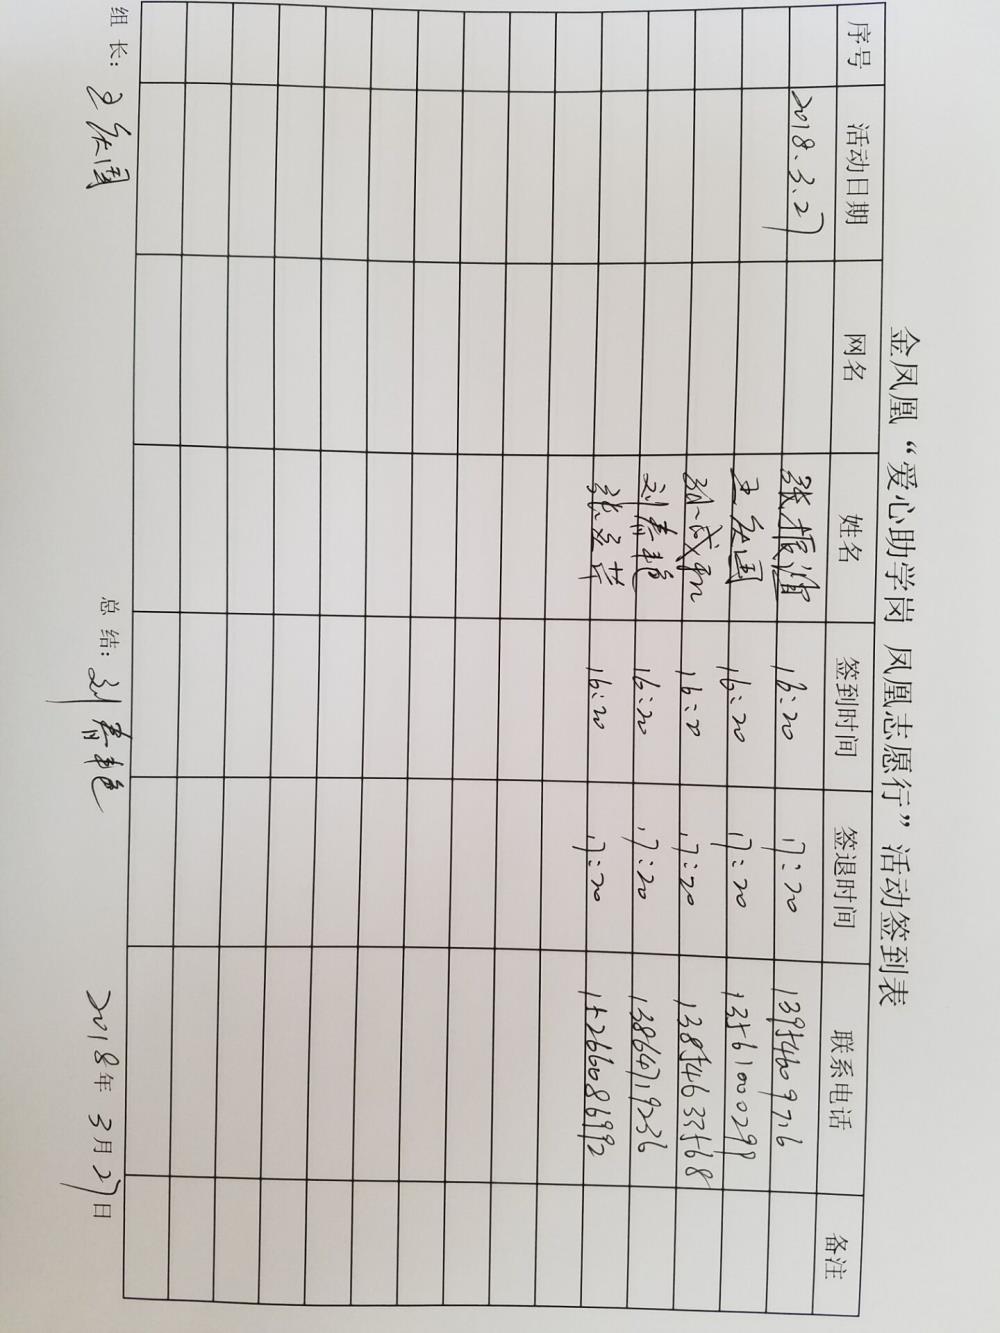 金凤凰“爱心助学岗 凤凰志愿行”活动签到表
序号 活动日期 网名 姓名 签到时间 签退时间 联系电话 备注
2018.3.27 张振渲 16:20 17:20 13954609776
王庆国 16:20 17:20 13561000299
16:20 17:20 13854633568
刘春艳 16:20 17:20 13864719236
16:20 17:20 15266086992
组 长: 王庆国 总 结: 刘春艳 2018年 3月27日